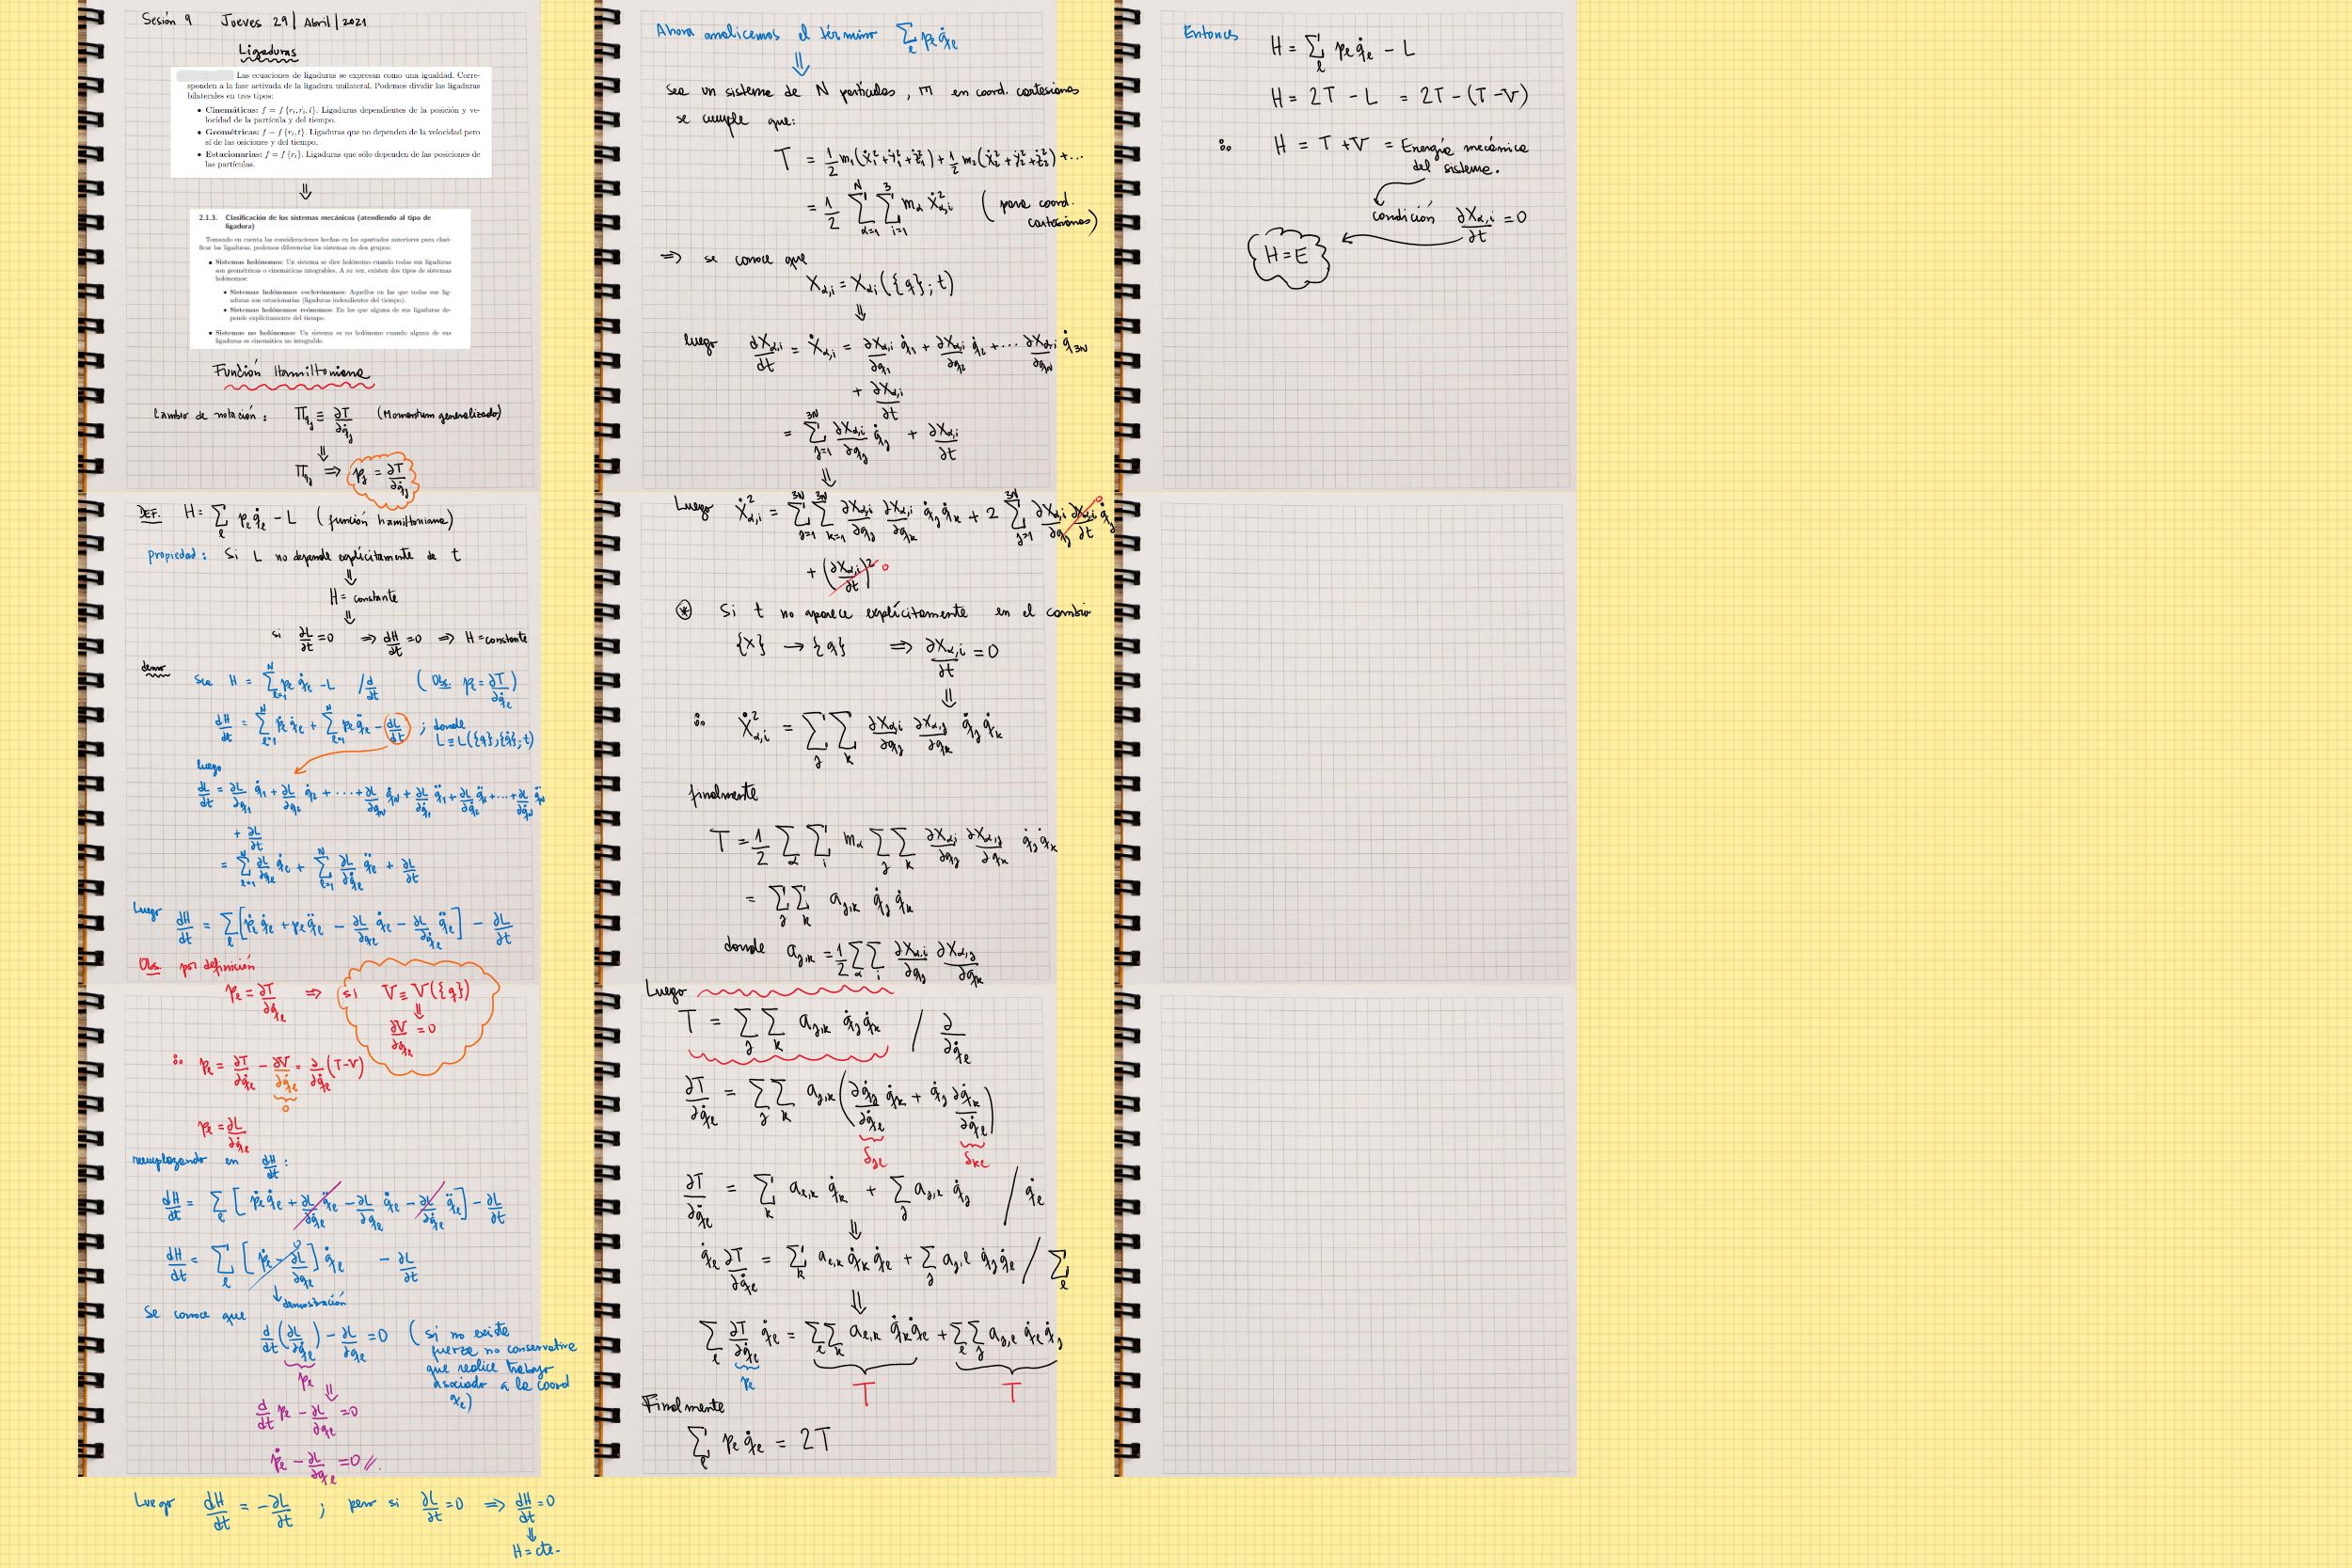 Sesión 9 Jueves 29 | Abril | 2021
Ligaduras
Las ecuaciones de ligaduras se expresan como una igualdad. Corre-
sponden a la fase activada de la ligadura unilateral. Podemos dividir las ligaduras
bilaterales en tres tipos:
• Cinemáticas: f = f {rᵢ, ṙᵢ, t}. Ligaduras dependientes de la posición y ve-
locidad de la partícula y del tiempo.
• Geométricas: f = f {rᵢ, t}. Ligaduras que no dependen de la velocidad pero
sí de las osiciones y del tiempo.
• Estacionarias: f = f {rᵢ}. Ligaduras que sólo dependen de las posiciones de
las partículas.
⇓
2.1.3. Clasificación de los sistemas mecánicos (atendiendo al tipo de
ligadura)
Tomando en cuenta las consideraciones hechas en los apartados anteriores para clasi-
ficar las ligaduras, podemos diferenciar los sistemas en dos grupos:
• Sistemas holónomos: Un sistema se dice holónomo cuando todas sus ligaduras
son geométricas o cinemáticas integrables. A su vez, existen dos tipos de sistemas
holónomos:
• Sistemas holónomos esclerónomos: Aquellos en las que todas sus lig-
aduras son estacionarias (ligaduras indendientes del tiempo).
• Sistemas holónomos reónomos: En los que alguna de sus ligaduras de-
pende explícitamente del tiempo.
• Sistemas no holónomos: Un sistema es no holónomo cuando alguna de sus
ligaduras es cinemática no integrable.
Función Hamiltoniana
Cambio de notación: Π_qj ≡ ∂T/∂q̇j (Momentum generalizado)
⇓
Π_qj ⇒ pj = ∂T/∂q̇j
DEF. H = Σ_ℓ pℓ q̇ℓ − L (función hamiltoniana)
propiedad: Si L no depende explícitamente de t
⇓
H = constante
⇓
si ∂L/∂t = 0 ⇒ dH/dt = 0 ⇒ H = constante
demo
Sea H = Σ_{ℓ=1}^N pℓ q̇ℓ − L /d/dt (Obs. pℓ = ∂T/∂q̇ℓ)
dH/dt = Σ_{ℓ=1}^N ṗℓ q̇ℓ + Σ_{ℓ=1}^N pℓ q̈ℓ − dL/dt ; donde
L ≡ L({q},{q̇};t)
luego
dL/dt = ∂L/∂q1 q̇1 + ∂L/∂q2 q̇2 + ... + ∂L/∂qN q̇N + ∂L/∂q̇1 q̈1 + ∂L/∂q̇2 q̈2 + ... + ∂L/∂q̇N q̈N
+ ∂L/∂t
= Σ_{ℓ=1}^N ∂L/∂qℓ q̇ℓ + Σ_{ℓ=1}^N ∂L/∂q̇ℓ q̈ℓ + ∂L/∂t
Luego dH/dt = Σ_ℓ [ṗℓ q̇ℓ + pℓ q̈ℓ − ∂L/∂qℓ q̇ℓ − ∂L/∂q̇ℓ q̈ℓ] − ∂L/∂t
Obs. por definición
pℓ = ∂T/∂q̇ℓ ⇒ si V ≡ V({q})
⇓
∂V/∂q̇ℓ = 0
∴ pℓ = ∂T/∂q̇ℓ − ∂V/∂q̇ℓ = ∂/∂q̇ℓ (T−V)
0
pℓ = ∂L/∂q̇ℓ
reemplazando en dH/dt:
dH/dt = Σ_ℓ [ṗℓ q̇ℓ + ∂L/∂q̇ℓ q̈ℓ − ∂L/∂qℓ q̇ℓ − ∂L/∂q̇ℓ q̈ℓ] − ∂L/∂t
dH/dt = Σ_ℓ [ṗℓ − ∂L/∂qℓ] q̇ℓ − ∂L/∂t
0
↓ demostración
Se conoce que
d/dt (∂L/∂q̇ℓ) − ∂L/∂qℓ = 0 (si no existe
fuerza no conservativa
que realice trabajo
asociado a la coord
qℓ)
pℓ ⇓
d/dt pℓ − ∂L/∂qℓ = 0
ṗℓ − ∂L/∂qℓ = 0 //.
Luego dH/dt = −∂L/∂t ; pero si ∂L/∂t = 0 ⇒ dH/dt = 0
⇓
H = cte.
Ahora analicemos el término Σ_ℓ pℓ q̇ℓ
⇓
Sea un sistema de N partículas, m en coord. cartesianas
se cumple que:
T = 1/2 m1(ẋ1² + ẏ1² + ż1²) + 1/2 m2(ẋ2² + ẏ2² + ż2²) + ...
= 1/2 Σ_{α=1}^N Σ_{i=1}^3 mα Ẋ²α,i (para coord.
cartesianas)
⇒ se conoce que
Xα,i = Xα,i({q};t)
⇓
luego dXα,i/dt = Ẋα,i = ∂Xα,i/∂q1 q̇1 + ∂Xα,i/∂q2 q̇2 + ... ∂Xα,i/∂qN q̇3N
+ ∂Xα,i/∂t
= Σ_{j=1}^{3N} ∂Xα,i/∂qj q̇j + ∂Xα,i/∂t
⇓
Luego Ẋ²α,i = Σ_{j=1}^{3N} Σ_{k=1}^{3N} ∂Xα,i/∂qj ∂Xα,i/∂qk q̇j q̇k + 2 Σ_{j=1}^{3N} ∂Xα,i/∂qj ∂Xα,i/∂t q̇j 0
+ (∂Xα,i/∂t)² 0
⊛ Si t no aparece explícitamente en el cambio
{x} → {q} ⇒ ∂Xα,i/∂t = 0
⇓
∴ Ẋ²α,i = Σ_j Σ_k ∂Xα,i/∂qj ∂Xα,j/∂qk q̇j q̇k
finalmente
T = 1/2 Σ_α Σ_i mα Σ_j Σ_k ∂Xα,i/∂qj ∂Xα,j/∂qk q̇j q̇k
= Σ_j Σ_k aj,k q̇j q̇k
donde aj,k = 1/2 Σ_α Σ_i ∂Xα,i/∂qj ∂Xα,j/∂qk
Luego
T = Σ_j Σ_k aj,k q̇j q̇k / ∂/∂q̇ℓ
∂T/∂q̇ℓ = Σ_j Σ_k aj,k (∂q̇j/∂q̇ℓ q̇k + q̇j ∂q̇k/∂q̇ℓ)
δjℓ δkℓ
∂T/∂q̇ℓ = Σ_k aℓ,k q̇k + Σ_j aj,ℓ q̇j / q̇ℓ
⇓
q̇ℓ ∂T/∂q̇ℓ = Σ_k aℓ,k q̇k q̇ℓ + Σ_j aj,ℓ q̇j q̇ℓ / Σ_ℓ
⇓
Σ_ℓ ∂T/∂q̇ℓ q̇ℓ = Σ_ℓ Σ_k aℓ,k q̇k q̇ℓ + Σ_ℓ Σ_j aj,ℓ q̇ℓ q̇j
pℓ T T
Finalmente
Σ_ℓ pℓ q̇ℓ = 2T
Entonces
H = Σ_ℓ pℓ q̇ℓ − L
H = 2T − L = 2T − (T−V)
∴ H = T + V = Energía mecánica
del sistema.
condición ∂Xα,i/∂t = 0
H = E